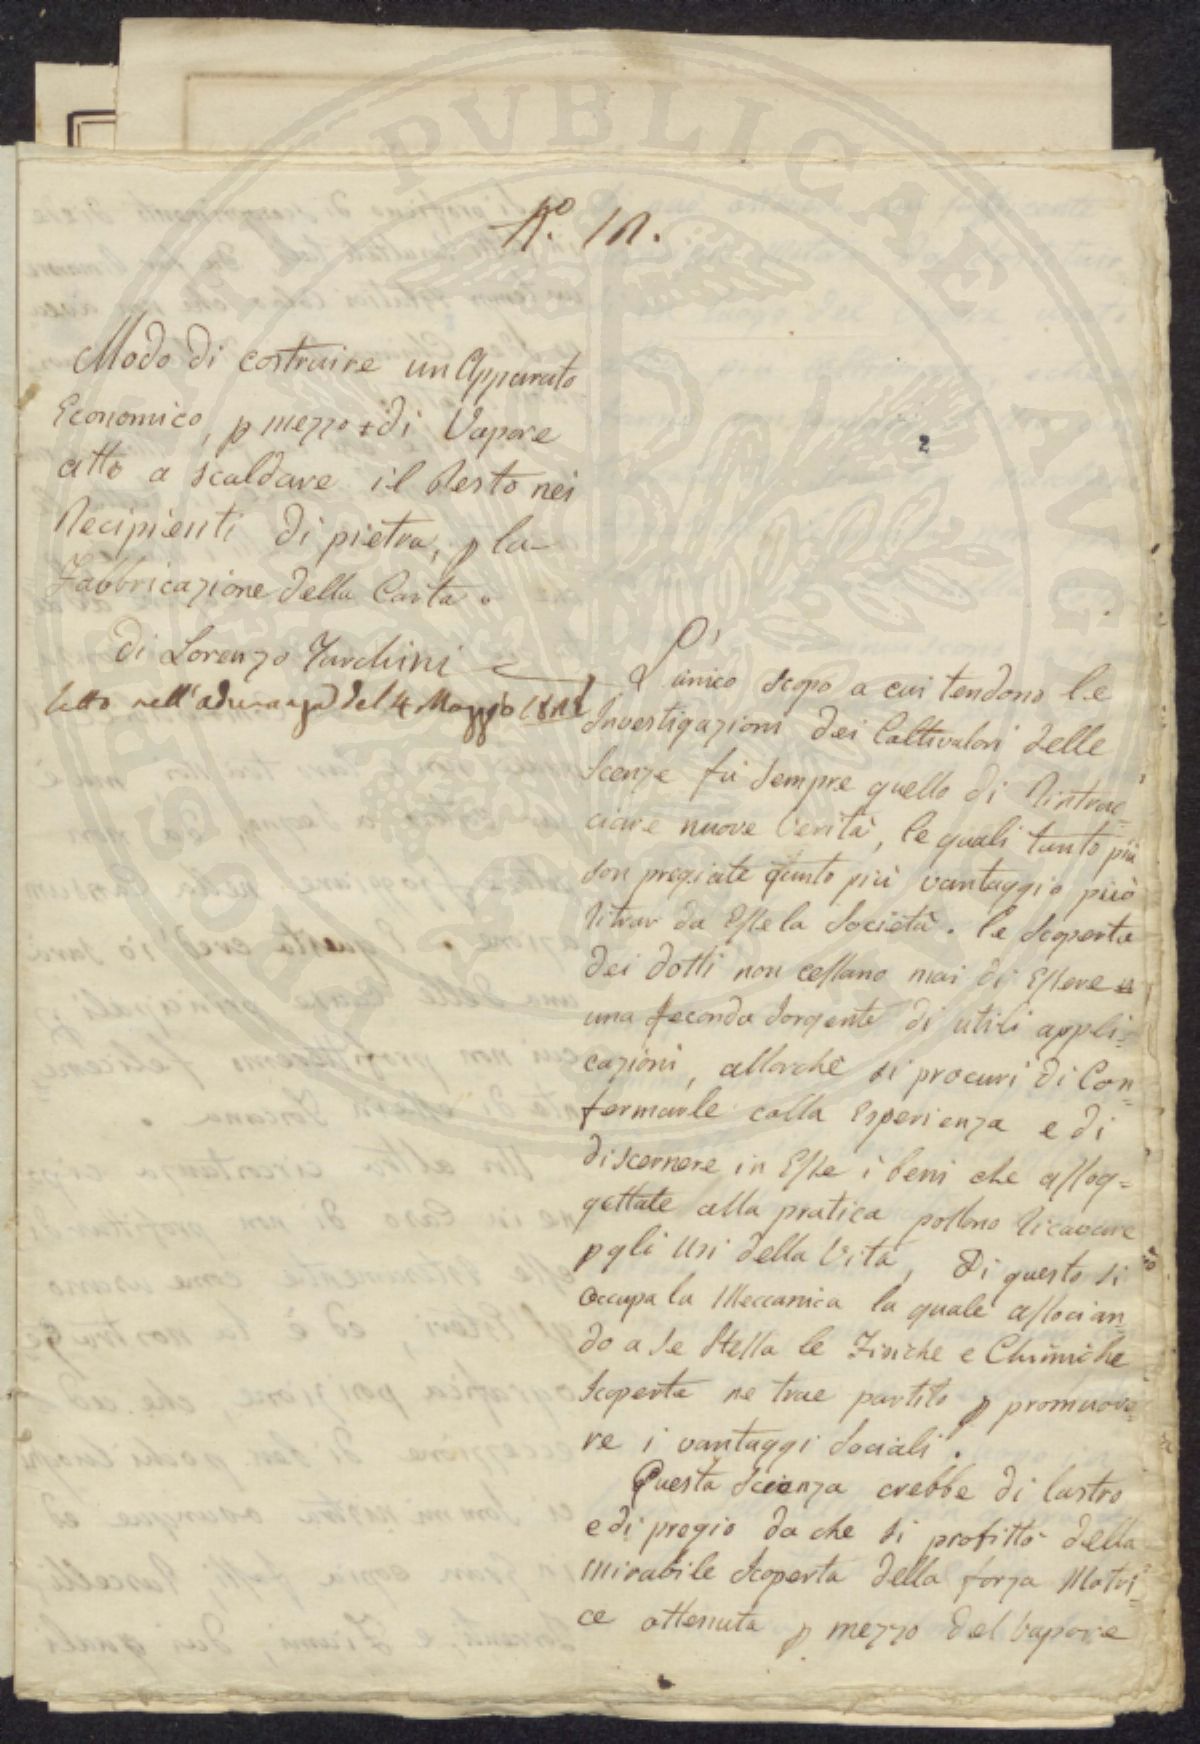 N.° 12.
Modo di costruire un Apparato
Economico, p mezzo di Vapore
atto a scaldare il Pesto nei
Recipienti di pietra, p la
Fabbricazione della Carta.
di Lorenzo Tarchini
letto nell'adunanza del 4 Maggio
2
L'unico scopo a cui tendono le
Investigazioni dei Coltivatori delle
Scenze fu sempre quello di Rintrac=
ciare nuove Verità, le quali tanto più
son pregiate quanto più vantaggio può
ritrar da Esse la Società. le Scoperte
dei dotti non cessano mai di Essere
una feconda Sorgente di utili appli=
cazioni, allorchè si procuri di Con=
fermarle colla Esperienza e di
discernere in Esse i beni che assog=
gettate alla pratica possono ricavare
p gli Usi della Vita, Di questo si
occupa la Meccanica la quale associan=
do a se Stessa le Fisiche e Chimiche
Scoperte ne trae partito p promuove=
re i vantaggi Sociali.
Questa Scienza crebbe di lustro
e di pregio da che si profittò della
mirabile Scoperta della forza Motri=
ce ottenuta p mezzo del Vapore